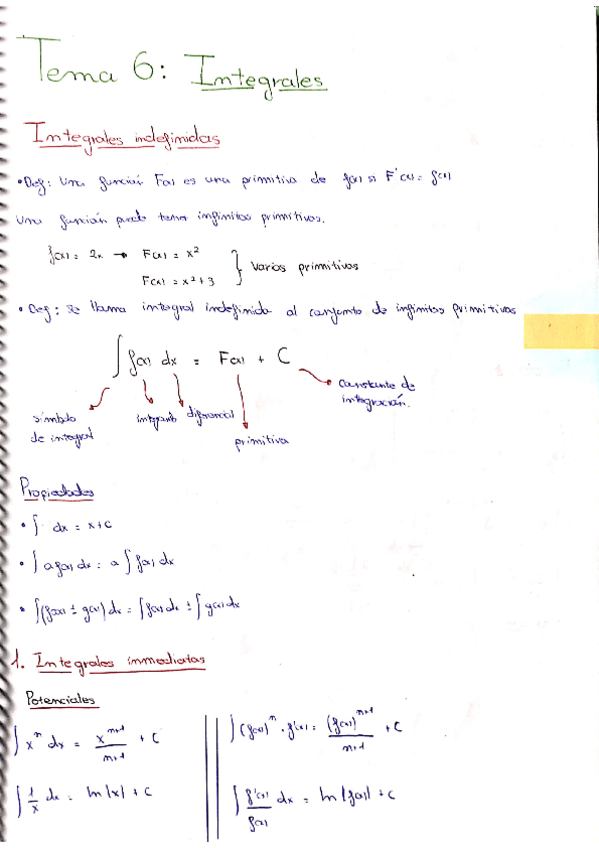 Tema 6: Integrales
Integrales indefinidas
• Def: Una función F(x) es una primitiva de f(x) si F'(x) = f(x)
Una función puede tener infinitas primitivas.
f(x) = 2x → F(x) = x²
F(x) = x² + 3 } Varias primitivas
• Def: Se llama integral indefinida al conjunto de infinitas primitivas
∫ f(x) dx = F(x) + C
símbolo de integral
integrando
diferencial
primitiva
constante de integración.
Propiedades
• ∫ dx = x + C
• ∫ a f(x) dx = a ∫ f(x) dx
• ∫ (f(x) ± g(x)) dx = ∫ f(x) dx ± ∫ g(x) dx
1. Integrales inmediatas
Potenciales
∫ xⁿ dx = xⁿ⁺¹/n+1 + C
∫ (f(x))ⁿ · f'(x) = (f(x))ⁿ⁺¹/n+1 + C
∫ 1/x dx = ln|x| + C
∫ f'(x)/f(x) dx = ln|f(x)| + C